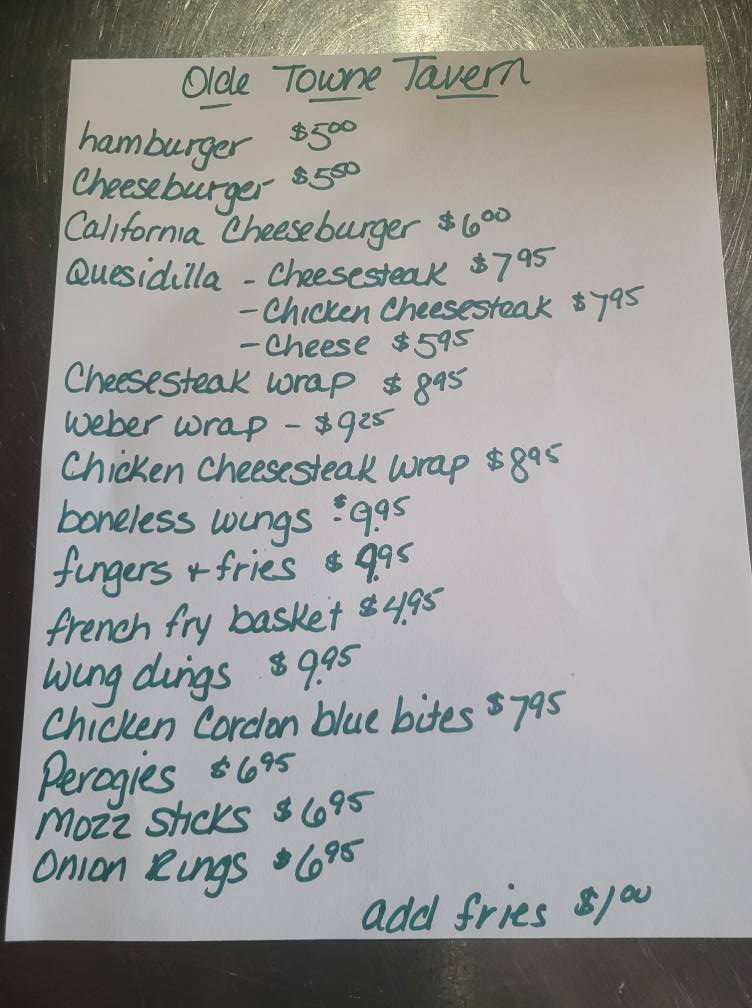 Olde Towne Tavern
hamburger $5.00
Cheeseburger $5.50
California Cheeseburger $6.00
Quesidilla - Cheesesteak $7.95
- Chicken Cheesesteak $7.95
- Cheese $5.95
Cheesesteak wrap $8.95
weber wrap - $9.25
Chicken Cheesesteak wrap $8.95
boneless wings $9.95
fingers + fries $9.95
french fry basket $4.95
Wing dings $9.95
Chicken Cordon blue bites $7.95
Perogies $6.95
Mozz Sticks $6.95
Onion Rings $6.95
add fries $1.00